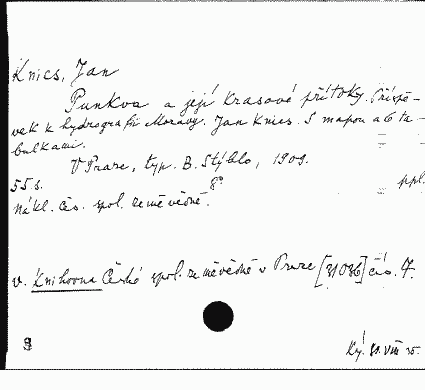 Knies, Jan
Punkva a její krasové přítoky. Příspě-
vek k hydrografii Moravy. Jan Knies. S mapou a 6 ta-
bulkami.
V Praze, typ. B. Stýblo, 1909.
55 s. 8° ppl.
Nákl. čes. spol. zeměvědné.
v. Knihovna České spol. zeměvědné v Praze [31086] čís. 7.